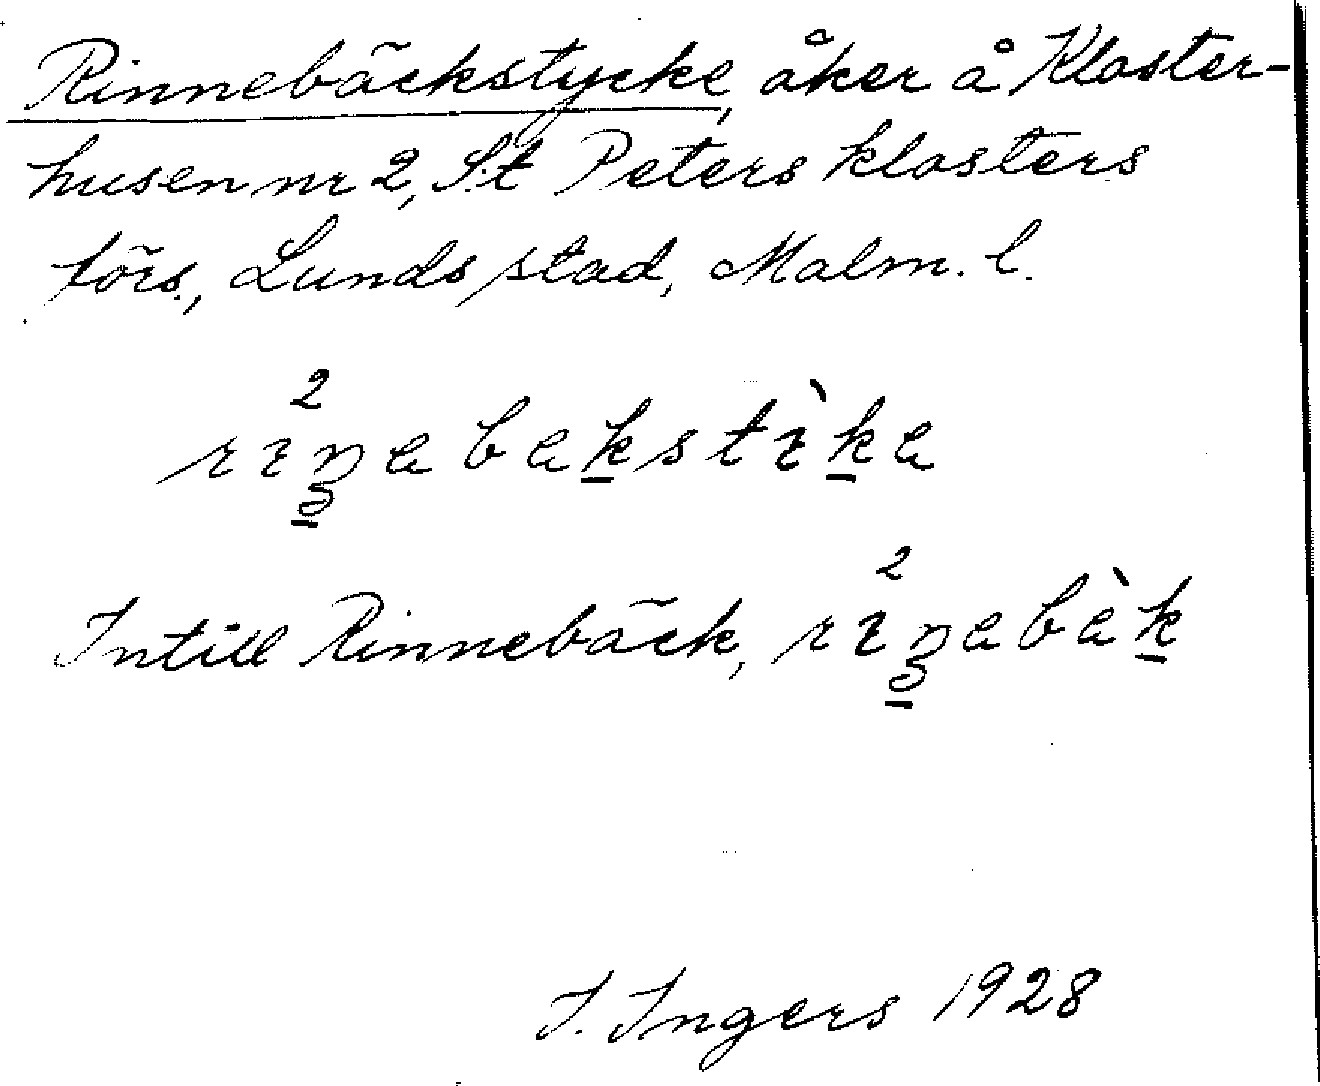 Rinnebäckstycke, åker å Kloster-
husen nr 2, S:t Peters klosters
förs., Lunds stad, Malm. l.
Intill Rinnebäck,
I. Ingers 1928